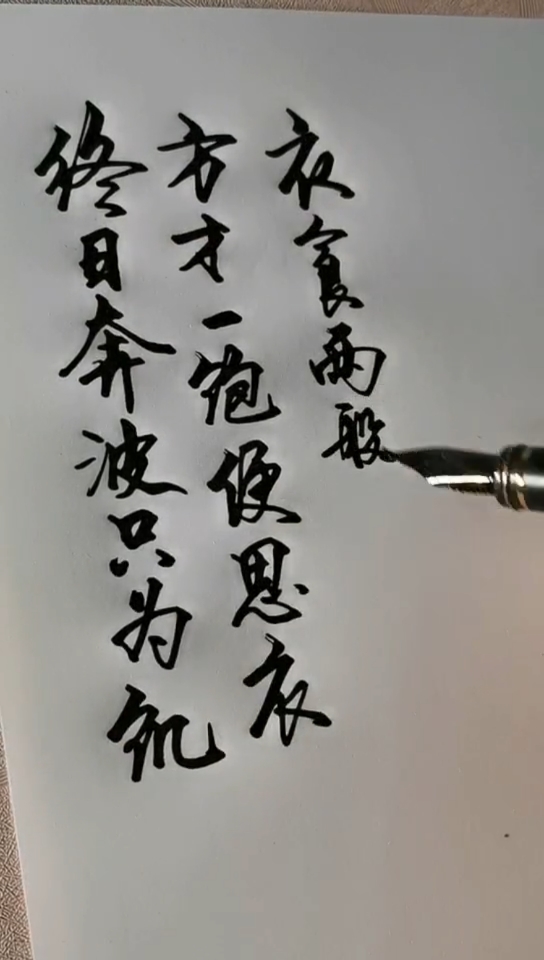 终日奔波只为饥
方才一饱便思衣
衣食两般